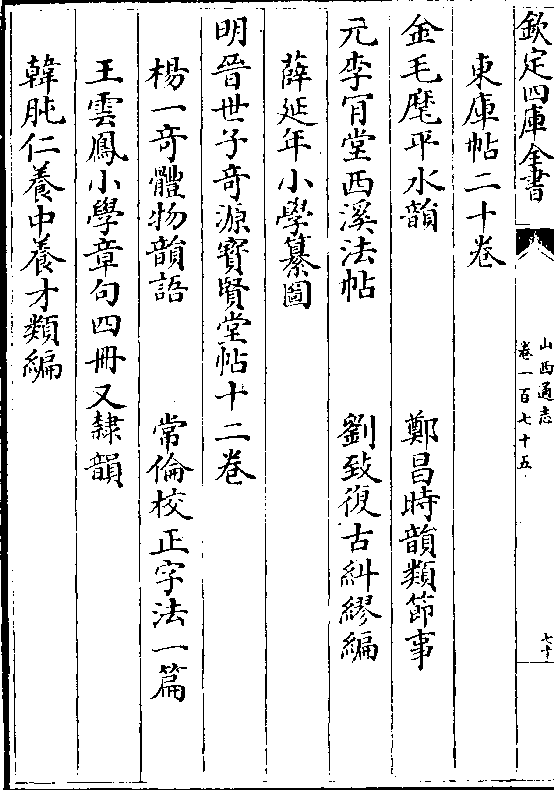 欽定四庫全書
山西通志
卷一百七十五
七十
東庫帖二十卷
金毛麾平水韻 鄭昌時韻類節事
元李肎堂西溪法帖 劉致復古糾繆編
薛延年小學纂圖
明晉世子奇源寶賢堂帖十二卷
楊一奇體物韻語 常倫校正字法一篇
王雲鳳小學章句四冊又隸韻
韓肫仁養中養才類編